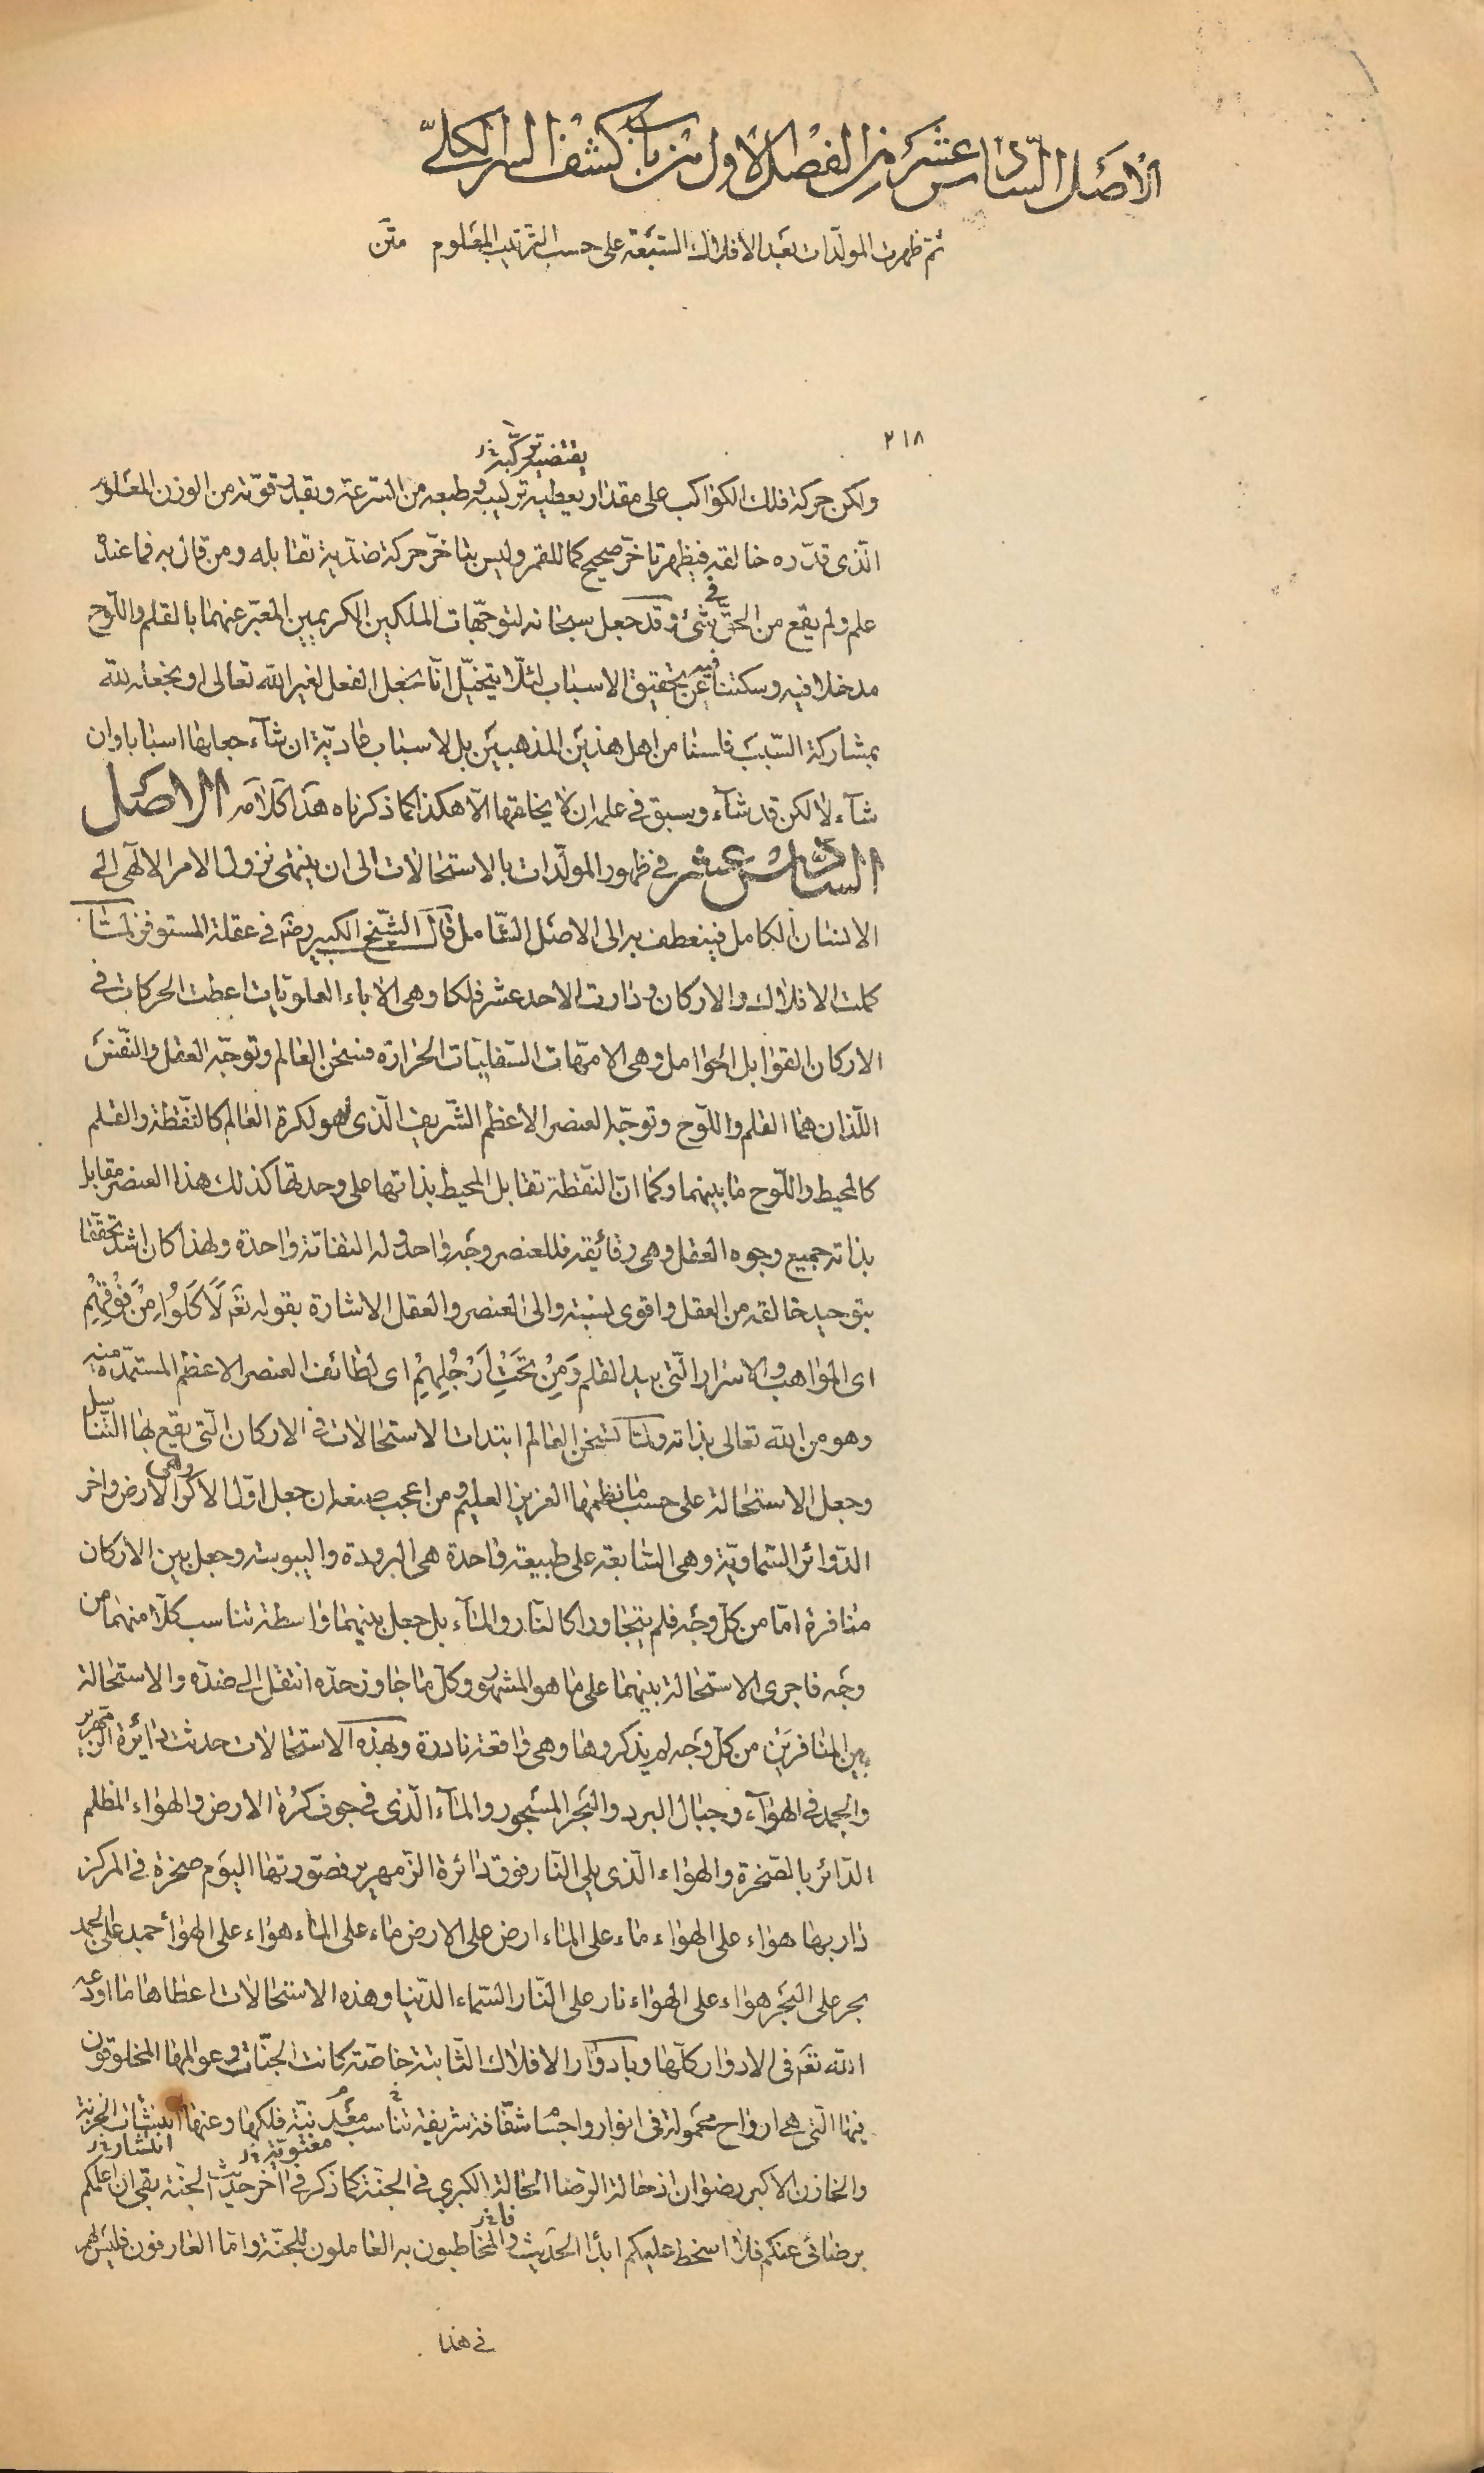 الاصل السادس عشر من الفصل الاول من باب كشف السر الكلّى
ثم ظهرت المولّدات بعد الافلاك السّبعة على حسب الترتيب المعلوم متن
٢١٨
يقتضيه تركّبه
ولكن حركة فلك الكواكب على مقدار يعطيه تركيبه وطبعه من السّرعة وبقدر قوّته من الوزن المعلوم
الّذى قدّره خالقه فيظهر تاخّر صحيح كما للقمر وليس بتاخّر حركة ضدّية تقابله ومن قال به فما عنده
علم ولم يقع من الحقّ فى شئ وقد جعل سبحانه لتوجّهات الملكين الكريمين المعبّر عنهما بالقلم واللّوح
مدخلا فيه وسكتنا فيه عن تحقيق الاسباب لئلّا يتخيّل انّا نجعل الفعل لغير الله تعالى او نجعله لله
بمشاركة السّبب فلسنا من اهل هذين المذهبين بل الاسباب عاديّة ان شآء جعلها اسبابا وان
شآء لا لكن قد شآء وسبق فى علمه ان لا يخلقها الّا هكذا كما ذكرناه هذا كلامه الاصل
السادس عشر فى ظهور المولّدات بالاستحالات الى ان ينتهى نزول الامر الالهى الى
الانسان الكامل فينعطف به الى الاصل الشّامل قال الشّيخ الكبير رضه فى عقلة المستوفز لمّا
كملت الافلاك والاركان ودارت الاحد عشر فلكا وهى الاباء العلويّات اعطت الحركات فى
الاركان القوابل الحوامل وهى الامّهات السّفليّات الحرارة فسخن العالم وتوجّه العقل والنّفس
اللّذان هما القلم واللّوح وتوجّه العنصر الاعظم الشّريف الّذى هو لكرة العالم كالنّقطة والقلم
كالمحيط واللّوح ما بينهما وكما انّ النّقطة تقابل المحيط بذاتها على وحدتها كذلك هذا العنصر مقابل
بذاته جميع وجوه العقل وهى رقائقه فللعنصر وجه واحد وله التفاتة واحدة ولهذا كان اشد تحقّقا
بتوحيد خالقه من العقل واقوى نسبة والى العنصر والعقل الاشارة بقوله تعه لَاَكَلُوا مِنْ فَوْقِهِمْ
اى المواهب والاسرار الّتى بيد القلم وَمِنْ تَحْتِ اَرْجُلِهِمْ اى لطائف العنصر الاعظم المستمدّة منه
وهو من الله تعالى بذاته ولمّا سخن العالم ابتدات الاستحالات فى الاركان الّتى يقع بها التناسل
وجعل الاستحالة على حسب ما نظمها العزيز العليم ومن اعجب صنعه ان جعل اوّل الاكر وهى الارض واخر
الدّوائر السّماويّة وهى السّابعة على طبيعة واحدة هى البرودة واليبوسة وجعل بين الاركان
منافرة امّا من كلّ وجه فلم يتجاورا كالنّار والمآء بل جعل بينهما واسطة تناسب كلّا منهما من
وجه فاجرى الاستحالة بينهما على ما هو المشهور وكلّ ما جاوز حدّه انتقل الى ضدّه والاستحالة
بين المنافرين من كلّ وجه لم يذكروها وهى واقعة نادرة وبهذه الاستحالات حدثت دائرة الزمهرير
والجمد فى الهوآء وجبال البرد والبحر المسجور والمآء الّذى فى جوف كرة الارض والهواء المظلم
الدّائر بالصّخرة والهواء الّذى يلى النّار فوق دائرة الزّمهرير فصورتها اليوم صخرة فى المركز
دار بها هواء على الهواء ماء على الماء ارض على الارض ماء على الماء هواء على الهواء جمد على الجمد
بحر على البحر هواء على الهواء نار على النّار السّماء الدّنيا وهذه الاستحالات اعطاها ما اودعه
الله تعه فى الادوار كلّها وبادوار الافلاك الثّابتة خاصّة كانت الجنّات وعوالمها المخلوقون
فيها الّتى هى ارواح محمولة فى انوار واجسام شفّافة شريفة تناسب معدنيّة فلكها وعنها
معنويّة انتشار
والخازن الاكبر رضوان اذ حالة الرّضا الحالة الكبرى فى الجنّة كما ذكر فى اخر حديث الجنّة بقى ان اعلمكم
برضائى عنكم فلا اسخط عليكم ابدا الحديث والمخاطبون به العاملون للجنّة وامّا العارفون فليس لهم
فى هذا